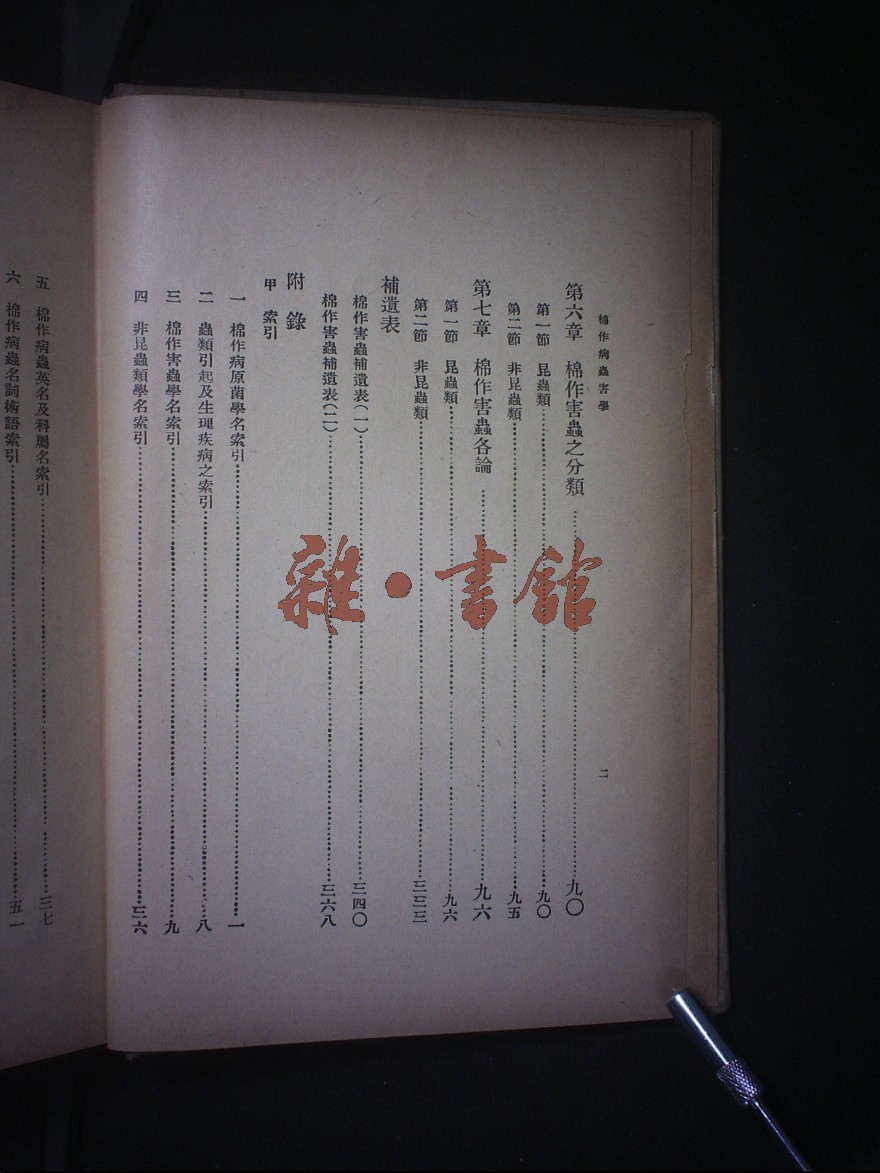 棉作病蟲害學
二
第六章 棉作害蟲之分類……九〇
第一節 昆蟲類……九〇
第二節 非昆蟲類……九五
第七章 棉作害蟲各論……九六
第一節 昆蟲類……九六
第二節 非昆蟲類……三三三
補遺表
棉作害蟲補遺表(一)……三四〇
棉作害蟲補遺表(二)……三六八
附錄
甲 索引
一 棉作病原菌學名索引……一
二 蟲類引起及生理疾病之索引……八
三 棉作害蟲學名索引……九
四 非昆蟲類學名索引……三六
五 棉作病蟲英名及科屬名索引……三七
六 棉作病蟲名詞術語索引……五一
雜·書館